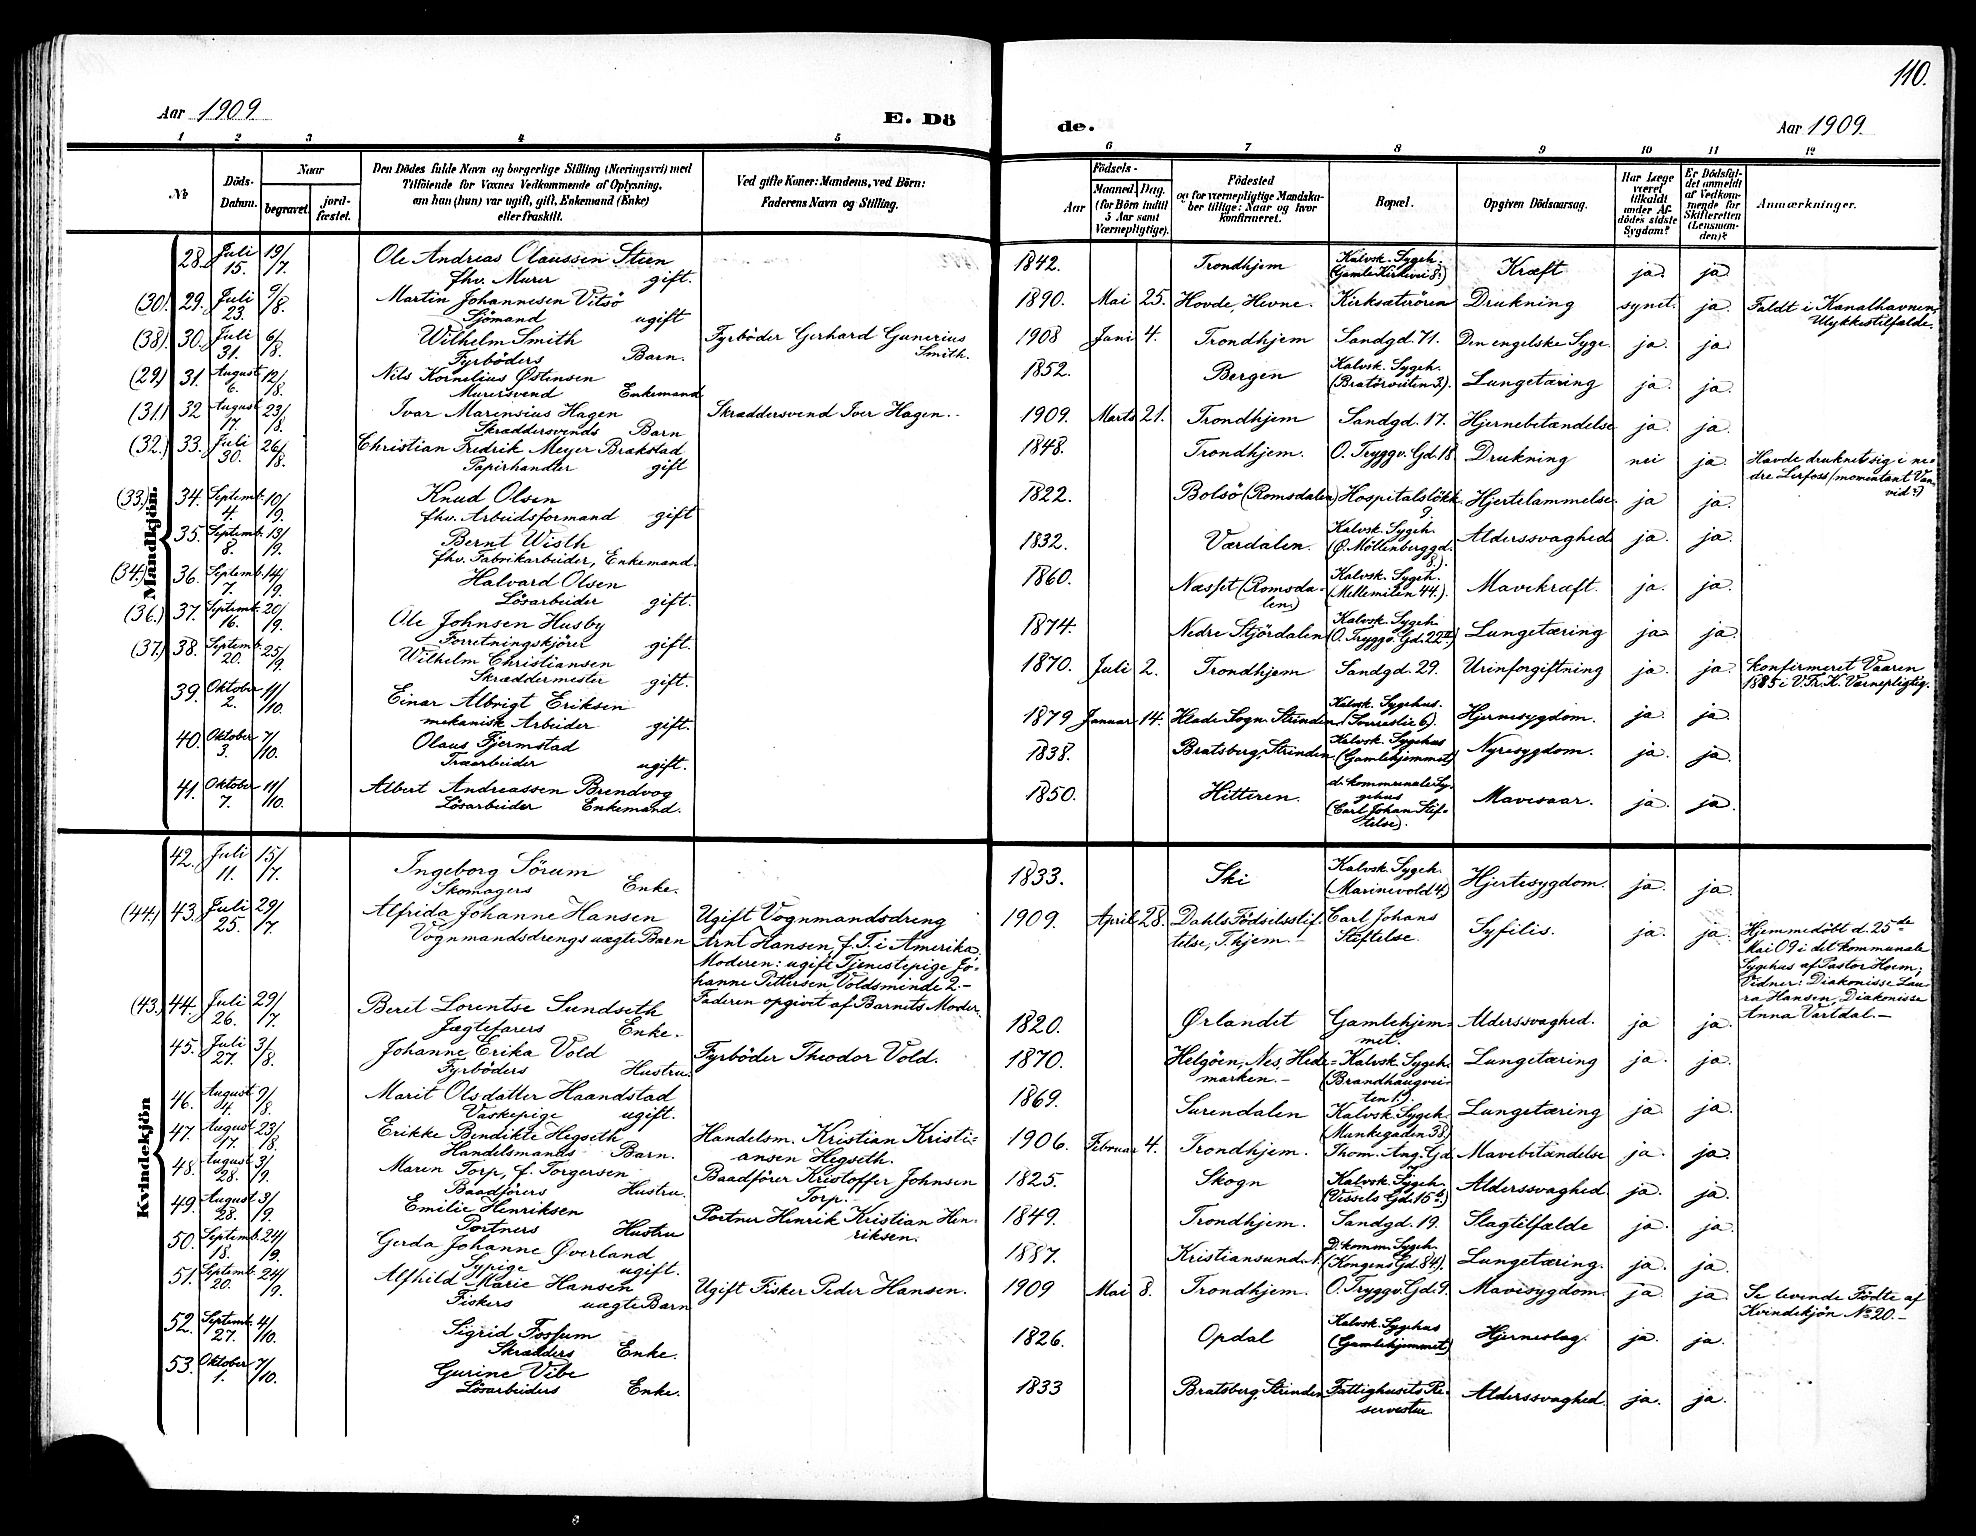 110.
Aar 1909.
E. Dö
de.
Aar 1909.
1 2 3 4 5
6 7 8 9 10 11 12
№
Döds-
Datum.
Naar
begravet.
jord-
fæstet.
Den Dödes fulde Navn og borgerlige Stilling (Næringsvei) med
Tilföiende for Voxnes Vedkommende af Oplysning,
om han (hun) var ugift, gift, Enkemand (Enke)
eller fraskilt.
Ved gifte Koner: Mandens, ved Börn:
Faderens Navn og Stilling.
Födsels-
Aar
Maaned. Dag.
(for Börn indtil
5 Aar samt
Værnepligtige).
Födested
og for værnepligtige Mandska-
ber tillige: Naar og hvor
konfirmeret.
Bopæl.
Opgiven Dödsaarsag.
Har Læge
været
tilkaldt
under Af-
dödes sidste
Sygdom?
Er Dödsfal-
det anmeldt
af Vedkom-
mende for
Skifteretten
(Lensman-
den)?
Anmærkninger.
Mandkjön.
28. Juli 15. 19/7. Ole Andreas Olaussen Stien
fhv. Murer gift.
1842. Trondhjem Kalvsk. Sygeh. (Gamle Kirkevei 8.) Kræft ja. ja
(30). 29. Juli 23. 9/8. Martin Johannesen Vitsö
Sjömand ugift
1890. Mai 25. Hovde, Hevne. Kirksæterören Drukning synet. ja. Faldt i Kanalhavnen,
Ulykkestilfælde.
(38). 30. Juli 31. 6/8. Wilhelm Smith
Fyrböders Barn.
Fyrböder Gerhard Gunerius
Smith.
1908 Juni 4. Trondhjem Sandgd. 71. Den engelske Syge. ja. ja
(29.) 31. August 6. 12/8. Nils Kornelius Østensen
Murersvend Enkemand
1852. Bergen Kalvsk. Sygeh. (Bratörveiten 3). Lungetæring ja. ja.
(31.) 32 August 17. 23/8. Ivar Marensius Hagen
Skræddersvends Barn
Skræddersvend Iver Hagen.
1909. Marts 21. Trondhjem Sandgd. 17. Hjernebetændelse ja. ja.
(32.) 33. Juli 30. 26/8. Christian Fredrik Meyer Brakstad
Papirhandler gift
1848. Trondhjem. O. Tryggv. Gd. 18 Drukning nei ja. Havde druknet sig i ne-
dre Lerfoss (momentant Van-
vid?)
(33.) 34. Septemb. 4. 10/9. Knud Olsen
fhv. Arbeidsformand gift
1822. Bolsö (Romsdalen) Hospitalslökk. 9. Hjertelammelse. ja ja.
35. Septemb. 8. 13/9. Bernt Wisth
fhv. Fabrikarbeider, Enkemand.
1832. Værdalen. Kalvsk. Sygeh. (Ø. Möllenberggd. 8.) Alderssvaghed ja. ja.
(34.) 36. Septemb. 7. 14/9. Halvard Olsen
Lösarbeider gift.
1860. Næsset (Romsda-
len) Kalvsk. Sygeh. (Mellemilen 44.). Mavekræft. ja. ja.
(36.) 37. Septemb. 16. 20/9. Ole Johnsen Husby
Forretningskjörer gift.
1874. Nedre Stjördalen Kalvsk. Sygeh. (O. Tryggv. Gd. 22 II) Lungetæring ja ja.
(37.) 38. Septemb. 20. 25/9. Wilhelm Christiansen
Skræddermester gift.
1870. Juli 2. Trondhjem Sandgd. 29. Urinforgiftning ja. ja. Konfirmeret Vaaren
1885 i V. Fr. K. Værnepligtig.
39. Oktober 2. 11/10. Einar Albrigt Eriksen
mekanisk Arbeider gift.
1879 Januar 14. Hlade Sogn. Strinden Kalvsk. Sygehus. Hjernesygdom. ja. ja.
40. Oktober 3. 7/10. Olaus Fjermstad
Træarbeider ugift.
1838. Bratsberg, Strinden. Kalvsk. Sygehus (Gamlehjemmet) Nyresygdom. ja. ja.
41. Oktober 7. 11/10. Albert Andreassen Brendvog
Lösarbeider Enkemand.
1850. Hitteren. d. kommunale Sy-
gehus
(Carl Johan Stif-
telse). Mavesaar. ja. ja.
Kvindekjön
42. Juli 11. 15/7. Ingeborg Sörum
Skomagers Enke.
1833. Ski Kalvsk. Sygeh. (Marinevold 4) Hjertesygdom. ja. ja.
(44.) 43. Juli 25. 29/7. Alfrida Johanne Hansen
Vognmandsdrengs uægte Barn
Ugift Vognmandsdreng
Arnt Hansen, f. T. i Amerika.
Moderen: ugift Tjenestepige Jo-
hanne Pettersen, Voldsminde 2.-
Faderen opgivet af Barnets Moder.
1909. April 28. Dahls Födselsstif-
telse, T.hjem.- Carl Johans
Stiftelse. Syfilis. ja. ja. Hjemmedøbt d. 25de
Mai 09 i det kommunale
Sygehus af Pastor Hoem;
Vidner: Diakonisse Lau-
ra Hansen, Diakonisse
Anna Vartdal.-
(43.) 44. Juli 26. 29/7. Beret Lorentse Sundseth
Jægtefarers Enke.
1820. Ørlandet Gamlehjem-
met. Alderssvaghed. ja ja.
45. Juli 27. 3/8. Johanne Erika Vold
Fyrböders Hustru.
Fyrböder Theodor Vold.
1870. Helgöen, Nes, Hede-
marken.- Kalvsk. Sygeh. (Brandhaugvei-
ten 1). Lungetæring ja. ja.
46. August 4. 9/8. Marit Olsdatter Haandstad
Vaskepige ugift.
1869. Surendalen Kalvsk. Sygeh. (Munkegaden 38) Lungetæring ja. ja.
47. August 17. 23/8. Erikke Bendikte Hegseth
Handelsmands Barn.
Handelsm. Kristian Kristi-
ansen Hegseth.
1906. Februar 4. Trondhjem. Thom. Ang. Gd. Mavebetændelse ja. ja.
48. August 28. 3/9. Maren Torp, f. Torgersen
Baadförers Hustru.
Baadförer Kristoffer Johnsen
Torp.
1825. Skogn Kalvsk. Sygeh. (Vessels Gd. 15 b.) Alderssvaghed ja. ja.
49. August 28. 3/9. Emilie Henriksen
Portners Hustru
Portner Henrik Kristian Hen-
riksen.
1849. Trondhjem. Sandgd. 19. Slagtilfælde ja. ja.
50. Septemb. 18. 24/9. Gerda Johanne Øverland
Sypige ugift.
1887. Kristiansund. D. komm. Sygeh. (Kongens Gd. 84). Lungetæring. ja. ja.
51. Septemb. 20. 24/9. Alfhild Marie Hansen
Fiskers uægte Barn
Ugift Fisker Peder Hansen.
1909 Mai 8. Trondhjem. O. Tryggv. Gd. 9. Mavesygdom. ja ja Se levende Födte af
Kvindekjön № 20.-
52. Septemb. 27. 4/10. Sigrid Fossum
Skrædders Enke.
1826. Opdal Kalvsk. Sygehus (Gamlehjemmet) Hjerneslag. ja. ja.
53. Oktober 1. 7/10. Gurine Vibe
Lösarbeiders Enke.
1833 Bratsberg, Strinden Fattighusets Re-
servestue Alderssvaghed. ja. ja.